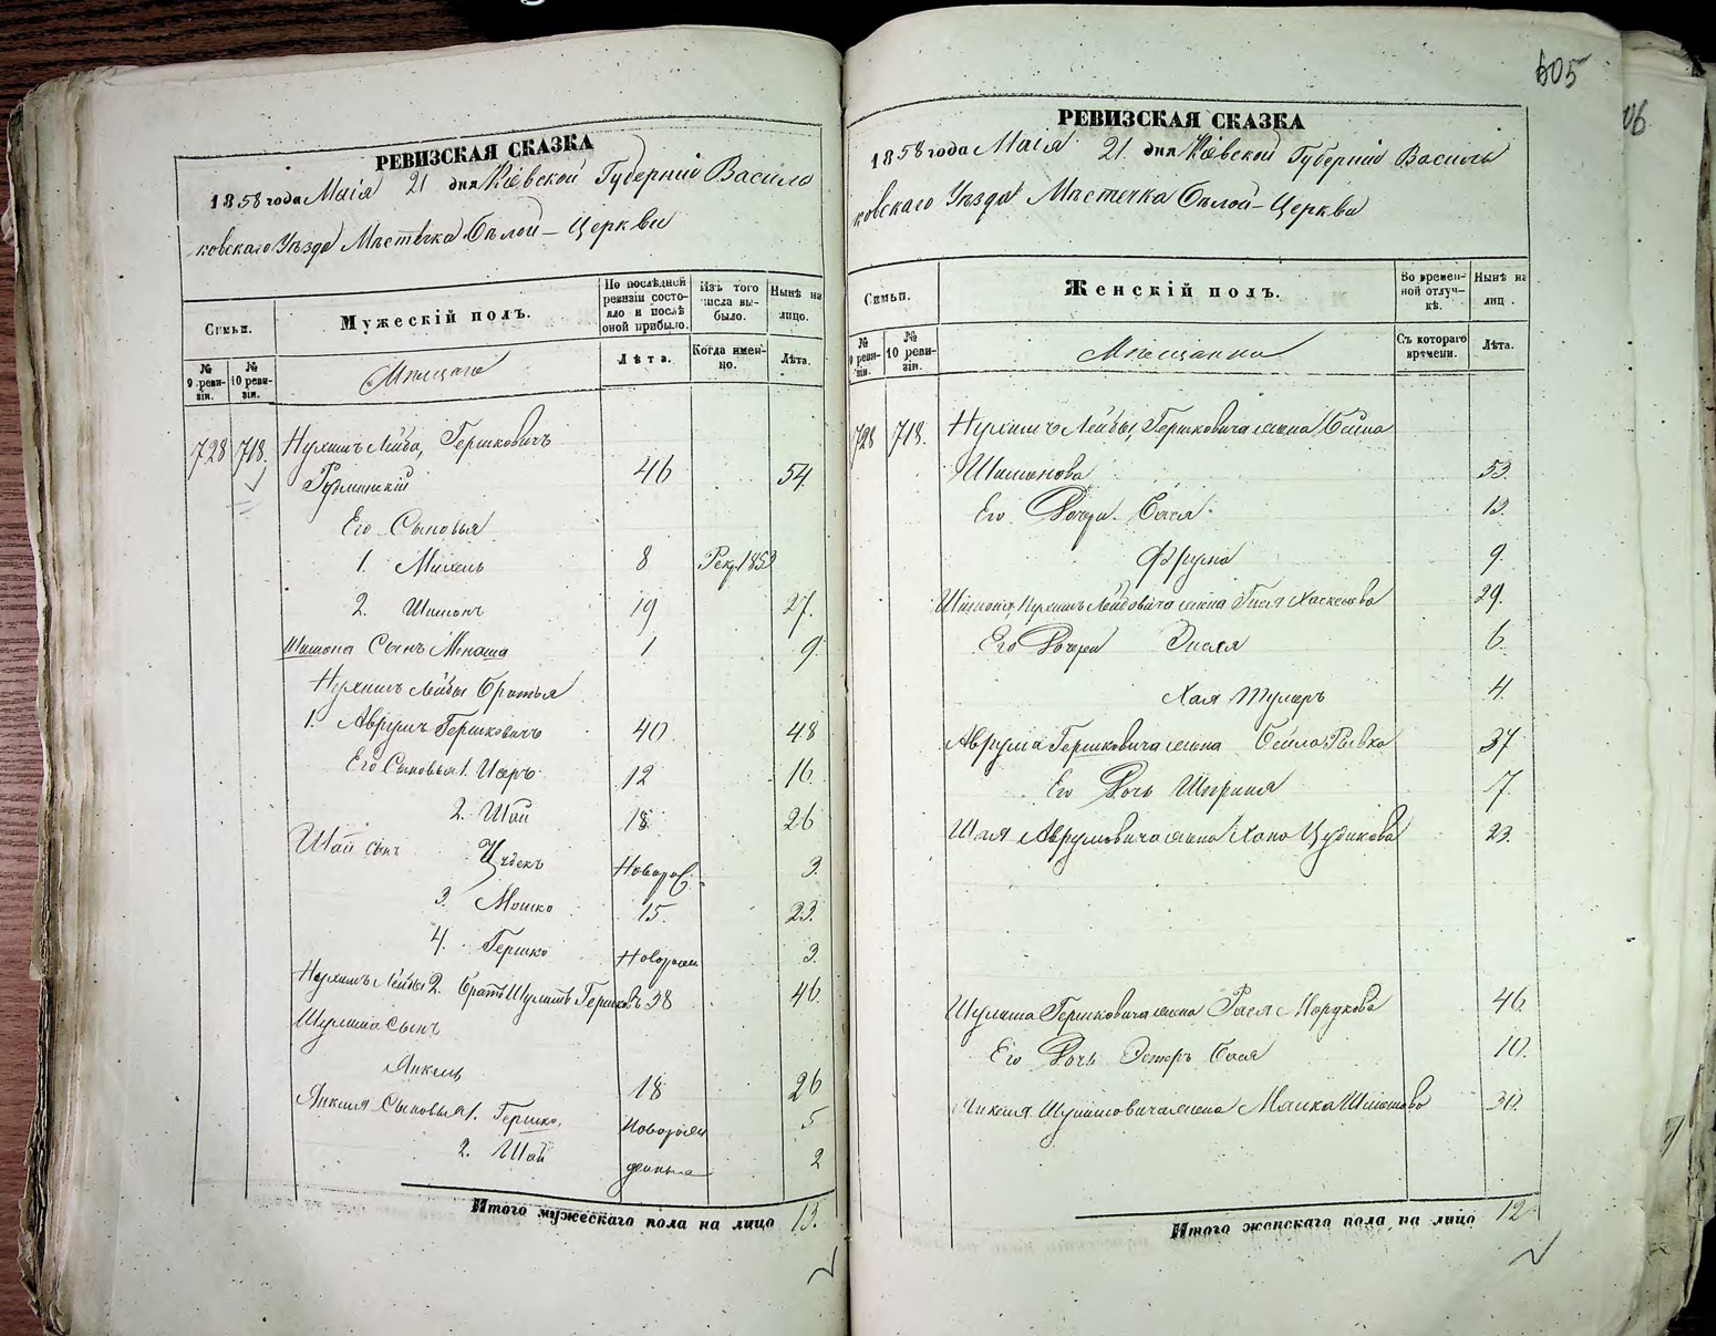 605
РЕВИЗСКАЯ СКАЗКА
1858 года Маія 21 дня Кіевской Губерніи Василь
ковскаго Уѣзда Мѣстечка Бѣлой-Церкви
Семьи.
Мужескій полъ.
По послѣдней ревизіи состояло и послѣ оной прибыло.
Изъ того числа выбыло.
Нынѣ на лицо.
№ 9 ревизіи.
№ 10 ревизіи.
Мѣщане
Лѣта.
Когда именно.
Лѣта.
728 718. Нухимъ Лейба, Гершковичъ
46 54.
Его Сыновья
1. Михель 8 Рекр. 1853
2. Шимонъ 19 27.
Шимона Сынъ Монаша 1 9.
Нухимъ Лейбы Братья
1. Аврумъ Гершковичъ 40. 48
Его Сыновья 1. 12 16
2. Шаи 18 26
Шаи сынъ Цудекъ Новорож. 3.
3. Мошко 15. 23.
4. Гершко Новорожд 3.
Нухимъ Лейбы 2. Братъ Шулимъ Гершков. 38 46.
Шулима Сынъ
Янкель 18 26
Янкеля Сыновья 1. Гершко, Новорож 5
2. Шаи денные 2
Итого мужескаго пола на лицо 13.
РЕВИЗСКАЯ СКАЗКА
1858 года Маія 21. дня Кіевской Губерніи Василь
ковскаго Уѣзда Мѣстечка Бѣлой-Церкви
Семьи.
Женскій полъ.
Во временной отлучкѣ.
Нынѣ на лиц.
№ 9 ревизіи.
№ 10 ревизіи.
Мѣщанки
Съ котораго времени.
Лѣта.
728 718. Нухимъ Лейбы, Гершковича жена
Шимонова 53.
Его Дочери Бася 13.
Фрума 9.
Шимона, Нухимъ Лейбовича жена Гися Хаскелева 29.
Его Дочери 6.
Хая 4.
Аврума Гершковича жена Бейла Ривка 37
Его Дочь Шпринца 7
Шая Аврумовича жена Хана Цудикова 23.
Шулима Гершковича жена Рася Мордкова 46
Его Дочь Эстеръ Бася 10.
Янкеля Шулимовича жена Малка 30.
Итого женскаго пола на лицо 12